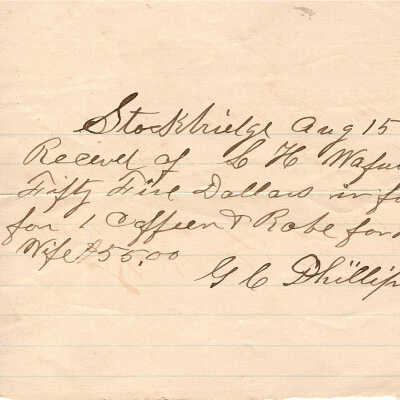 Stockbridge Aug 15
Received of L H
Fifty Five Dollars in
for 1 Coffeen & Robe for
Wife $55.00
G C Phillip